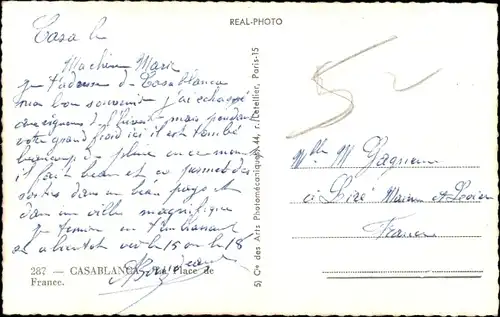 REAL-PHOTO
Casa le
Ma chère Marie
je t'adresse de Casablanca
mon bon souvenir j'ai échappé
aux rigueurs de l'hiver mais pendant
votre grand froid ici il est tombé
beaucoup de pluie en ce moment
il fait beau et ça permet des
sorties dans un beau pays et
dans une ville magnifique
je termine en t'embrassant
et à bientôt vers le 15 ou le 18
287 — CASABLANCA. - La Place de
France.
5) Cie des Arts Photomécaniques, 44, r. Letellier, Paris-15
5
Mlle M Gagneux
à Liré Maine et Loire
France